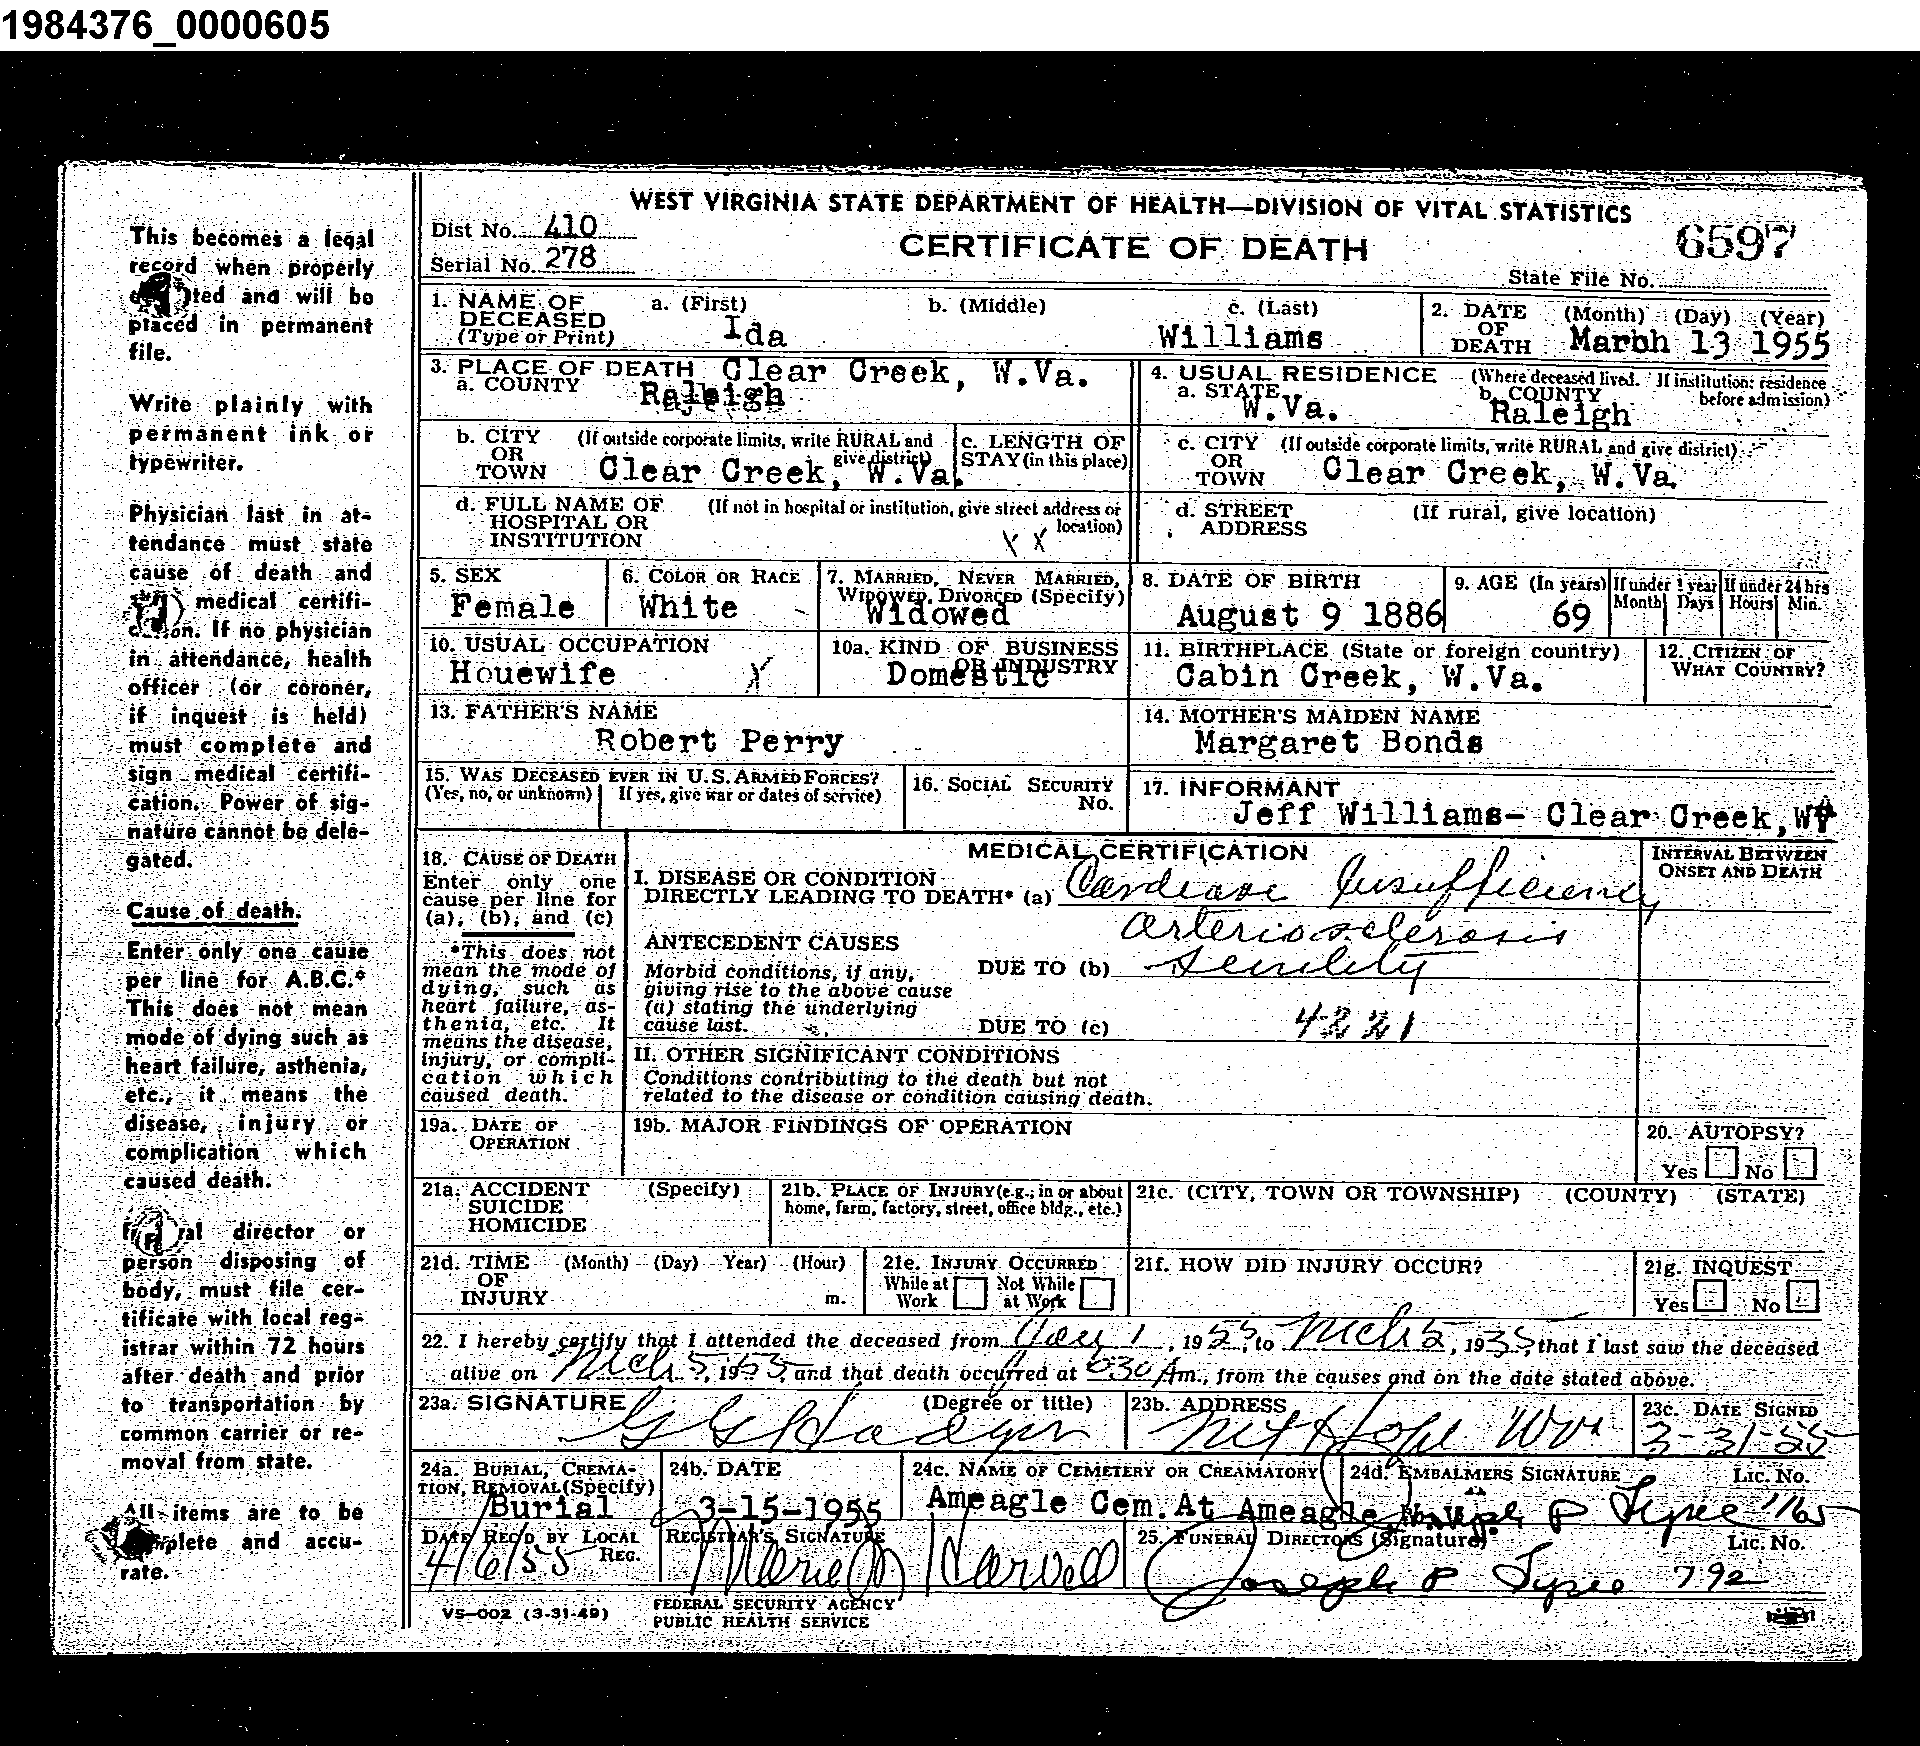 1984376_0000605
WEST VIRGINIA STATE DEPARTMENT OF HEALTH—DIVISION OF VITAL STATISTICS
Dist No. 410
Serial No. 278
CERTIFICATE OF DEATH
6597
State File No.
This becomes a legal
record when properly
and will be
placed in permanent
file.
Write plainly with
permanent ink or
typewriter.
Physician last in at-
tendance must state
cause of death and
medical certifi-
cation. If no physician
in attendance, health
officer (or coroner,
if inquest is held)
must complete and
sign medical certifi-
cation. Power of sig-
nature cannot be dele-
gated.
Cause of death.
Enter only one cause
per line for A.B.C.*
This does not mean
mode of dying such as
heart failure, asthenia,
etc., it means the
disease, injury or
complication which
caused death.
director or
person disposing of
body, must file cer-
tificate with local reg-
istrar within 72 hours
after death and prior
to transportation by
common carrier or re-
moval from state.
All items are to be
and accu-
rate.
1. NAME OF DECEASED (Type or Print) a. (First) b. (Middle) c. (Last)
Ida Williams
2. DATE OF DEATH (Month) (Day) (Year)
Marbh 13 1955
3. PLACE OF DEATH Clear Creek, W.Va.
a. COUNTY Raleigh
4. USUAL RESIDENCE (Where deceased lived. If institution: residence before admission)
a. STATE W.Va. b. COUNTY Raleigh
b. CITY OR TOWN (If outside corporate limits, write RURAL and give district)
Clear Creek, W.Va.
c. LENGTH OF STAY (in this place)
c. CITY OR TOWN (If outside corporate limits, write RURAL and give district)
Clear Creek, W.Va.
d. FULL NAME OF HOSPITAL OR INSTITUTION (If not in hospital or institution, give street address or location)
X X
d. STREET ADDRESS (If rural, give location)
5. SEX
Female
6. COLOR OR RACE
White
7. MARRIED, NEVER MARRIED, WIDOWED, DIVORCED (Specify)
Widowed
8. DATE OF BIRTH
August 9 1886
9. AGE (In years) If under 1 year If under 24 hrs
Month Days Hours Min.
69
10. USUAL OCCUPATION
Houewife X
10a. KIND OF BUSINESS OR INDUSTRY
Domestic
11. BIRTHPLACE (State or foreign country)
Cabin Creek, W.Va.
12. CITIZEN OF WHAT COUNTRY?
13. FATHER'S NAME
Robert Perry
14. MOTHER'S MAIDEN NAME
Margaret Bonds
15. WAS DECEASED EVER IN U.S. ARMED FORCES?
(Yes, no, or unknown) If yes, give war or dates of service)
16. SOCIAL SECURITY No.
17. INFORMANT
Jeff Williams- Clear Creek,
18. CAUSE OF DEATH
Enter only one
cause per line for
(a), (b), and (c)
*This does not
mean the mode of
dying, such as
heart failure, as-
thenia, etc. It
means the disease,
injury, or compli-
cation which
caused death.
MEDICAL CERTIFICATION
INTERVAL BETWEEN ONSET AND DEATH
I. DISEASE OR CONDITION
DIRECTLY LEADING TO DEATH* (a) Cardiac Insufficiency
arteriosclerosis
ANTECEDENT CAUSES
Morbid conditions, if any,
giving rise to the above cause
(a) stating the underlying
cause last.
DUE TO (b) Senility
DUE TO (c) 4221
II. OTHER SIGNIFICANT CONDITIONS
Conditions contributing to the death but not
related to the disease or condition causing death.
19a. DATE OF OPERATION
19b. MAJOR FINDINGS OF OPERATION
20. AUTOPSY?
Yes No
21a. ACCIDENT SUICIDE HOMICIDE (Specify)
21b. PLACE OF INJURY (e.g., in or about home, farm, factory, street, office bldg., etc.)
21c. (CITY, TOWN OR TOWNSHIP) (COUNTY) (STATE)
21d. TIME OF INJURY (Month) (Day) Year) (Hour) m.
21e. INJURY OCCURRED
While at Work Not While at Work
21f. HOW DID INJURY OCCUR?
21g. INQUEST
Yes No
22. I hereby certify that I attended the deceased from 1, 19 to Mch 5, 19 that I last saw the deceased
alive on Mch 5, 19 and that death occurred at 630 Am., from the causes and on the date stated above.
23a. SIGNATURE (Degree or title)
G G Hodges
23b. ADDRESS
Mt Hope WVa
23c. DATE SIGNED
3-31-55
24a. BURIAL, CREMA-
TION, REMOVAL (Specify)
Burial
24b. DATE
3-15-1955
24c. NAME OF CEMETERY OR CREAMATORY
Ameagle Cem. At Ameagle
24d. EMBALMERS SIGNATURE Lic. No.
Joseph P Tyree 1165
DATE REC'D BY LOCAL REG.
4/6/55
REGISTRAR'S SIGNATURE
Marie M Harvell
25. FUNERAL DIRECTORS (Signature) Lic. No.
Joseph P Tyree 792
VS-002 (3-31-49)
FEDERAL SECURITY AGENCY
PUBLIC HEALTH SERVICE